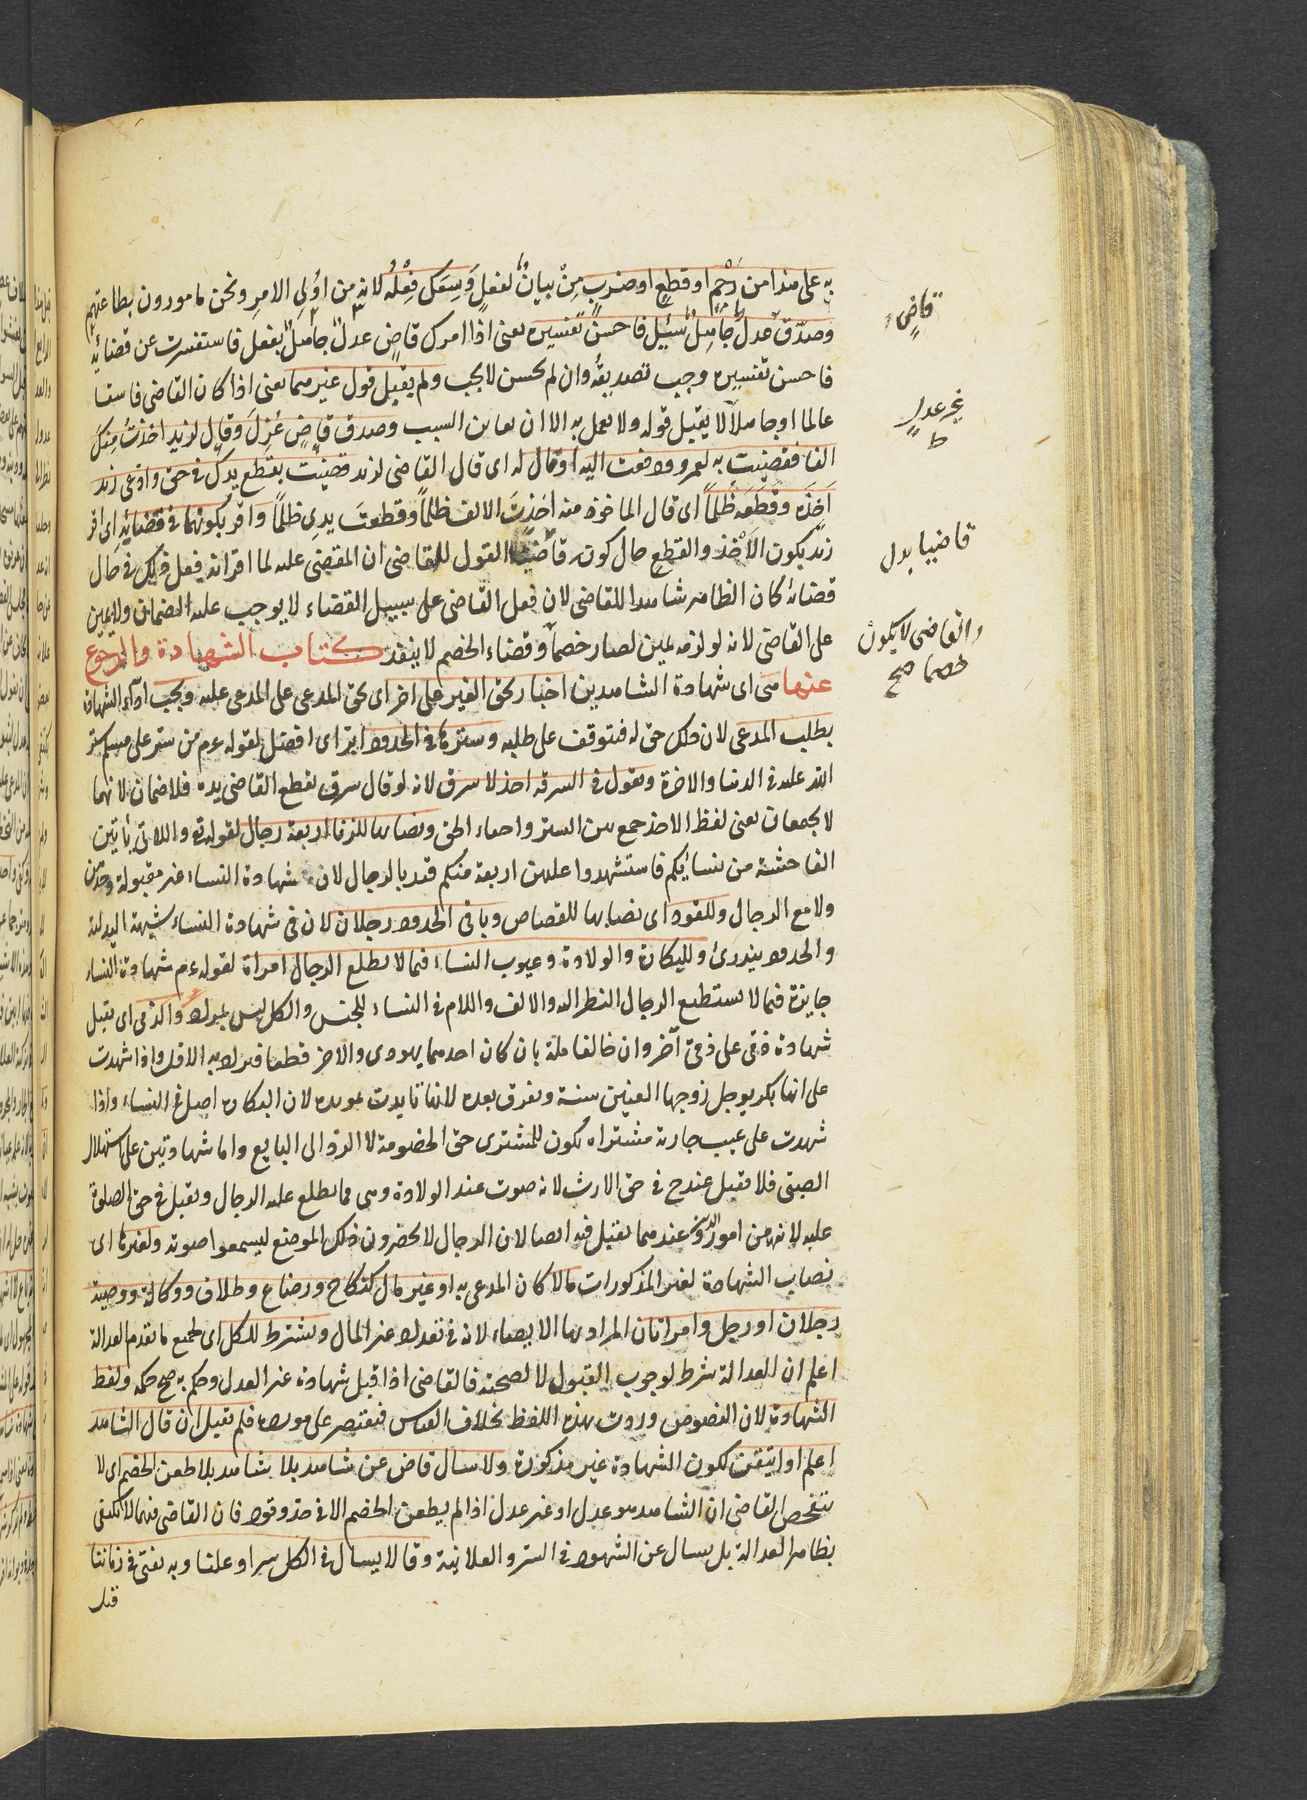 به على هذا من رجم او قطع او ضرب من بيان لفعل وسعك فعله لانه من اولى الامر ونحن مامورون بطاعتهم
وصدّق عدل جاهل سئيل فاحسن تفسيره يعنى اذا امرك قاض عدل جاهل بفعل فاستفسرت عن قضائه
فاحسن تفسيره وجب تصديقه وان لم يحسن لا يجب ولم يقبل قول غيرهما يعنى اذا كان القاضى فاسقا
عالما او جاهلا لا يقبل قوله ولا يعمل به الا ان يعاين السبب وصدق قاض عزل وقال لزيد اخذت منك
الفا فقضيت به لعمرو ودفعت اليه او قال له اى قال القاضى لزيد قضيت بقطع يدك فى حق وادعى زيد
اخذه وقطعه ظلما اى قال الماخوذ منه اخذت الالف ظلما وقطعت يدى ظلما واقر بكونهما فى قضائه اى اقر
زيد بكون الاخذ والقطع حال كونه قاضيا القول للقاضى ان المقضى عليه لما اقر انه فعل ذلك فى حال
قضائه كان الظاهر شاهدا للقاضى لان فعل القاضى على سبيل القضاء لا يوجب عليه الضمان ولا يمين
على القاضى لانه لو لزمه يمين لصار خصما وقضاء الخصم لا ينفذ كتاب الشهادة والرجوع
عنها هى اى شهادة الشاهدين اخبار بحق الغير على اخر اى بحق المدعى على المدعى عليه ويجب اداء الشهادة
بطلب المدعى لان ذلك حق له فيتوقف على طلبه وسترها فى الحدود ابر اى افضل لقوله عم من ستر على مسلم ستر
الله عليه فى الدنيا والاخرة ويقول فى السرقة اخذ لا سرق لانه لو قال سرق يقطع القاضى يده فلا ضمان لانهما
لا يجمعان يعنى لفظ الاخذ جمع بين الستر واحياء الحق ونصابها للزنا اربعة رجال لقوله تع واللاتى ياتين
الفاحشة من نسائكم فاستشهدوا عليهن اربعة منكم قيد بالرجال لان شهادة النساء غير مقبولة وحدهن
ولا مع الرجال وللقود اى نصابها للقصاص وباقى الحدود رجلان لان فى شهادة النساء شبهة البدلية
والحدود يندرئ وللبكارة والولادة وعيوب النساء فيما لا يطلع الرجال امراة لقوله عم شهادة النساء
جايزة فيما لا يستطيع الرجال النظر اليه والالف واللام فى النساء للجنس والكل ليس بمراد والذمى اى يقبل
شهادة ذمى على ذمى آخر وان خالفا ملة بان كان احدهما يهودى والاخر فيراد به الاقل واذا شهدت
على انها بكر يوجل زوجها العنين سنة ويفرق بعده لانها تايدت لان البكارة اصل فى النساء واذا
شهدت على عيب جارية مشتراه يكون للمشترى حق الخصومة لا الرد الى البايع واما شهادتين على استهلال
الصبى فلا يقبل عند ح فى حق الارث لانه صوت عند الولادة وهى مما يطلع عليه الرجال ويقبل فى حق الصلوة
عليه لانه من امور الدين وعندهما يقبل فيه ايضا لان الرجال لا يحضرون ذلك الموضع ليسمعوا صوته ولغيرها اى
نصاب الشهادة لغير المذكورات مالا كان المدعى به او غير مال كنكاح ورضاع وطلاق ووكالة ووصية
رجلان او رجل وامراتان المراد بها الايصاء لانه فى تعداد غير المال ويشترط للكل اى لجميع ما تقدم العدالة
اعلم ان العدالة شرط لوجوب القبول لا لصحته فالقاضى اذا قبل شهادة غير العدل وحكم به صح حكمه ولفظ
الشهادة لان النصوص وردت بهذه اللفظ بخلاف القياس فيقتصر على مورده فلم يقبل ان قال الشاهد
اعلم او اتيقن لكون الشهادة غير مذكورة ولا يسال قاض عن شاهد بلا طعن الخصم اى لا
يتفحص القاضى ان الشاهد هو عدل او غير عدل اذا لم يطعن الخصم الا فى حد وقود فان القاضى فيهما لا يكتفى
بظاهر العدالة بل يسال عن الشهود فى الستر والعلانية وقالا يسال فى الكل سرا وعلنا وبه يفتى فى زماننا
قيل
قاض
غير عدل
ط
قاضيا بدل
والقاضى لا يكون
خصما صح